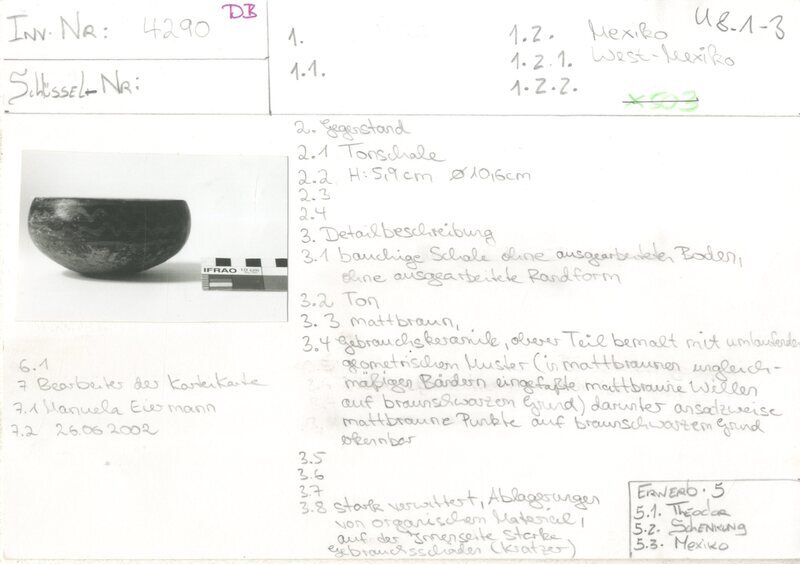 INV. NR: 4290 DB
SCHLÜSSEL-NR:
1.
1.1.
1.2. Mexiko
1.2.1. West-Mexiko
1.2.2.
U8.1-3
X503
2. Gegenstand
2.1 Tonschale
2.2 H: 5,9 cm Ø 10,6 cm
2.3
2.4
3. Detailbeschreibung
3.1 bauchige Schale ohne ausgearbeiteten Boden,
ohne ausgearbeitete Randform
3.2 Ton
3.3 mattbraun,
3.4 Gebrauchskeramik, oberer Teil bemalt mit umlaufenden
geometrischen Muster (in mattbraunen ungleich-
mäßigen Bändern eingefaßte mattbraune Wellen
auf braunschwarzem Grund) darunter ansatzweise
mattbraune Punkte auf braunschwarzem Grund
erkennbar
3.5
3.6
3.7
3.8 stark verwittert, Ablagerungen
von organischem Material,
auf der Innenseite starke
Gebrauchsschäden (Kratzer)
IFRAO 10 cm
6.1
7 Bearbeiter der Karteikarte
7.1 Manuela Eiermann
7.2 26.06.2002
ERWERB. 5
5.1. THEODOR
5.2. SCHENKUNG
5.3. MEXIKO